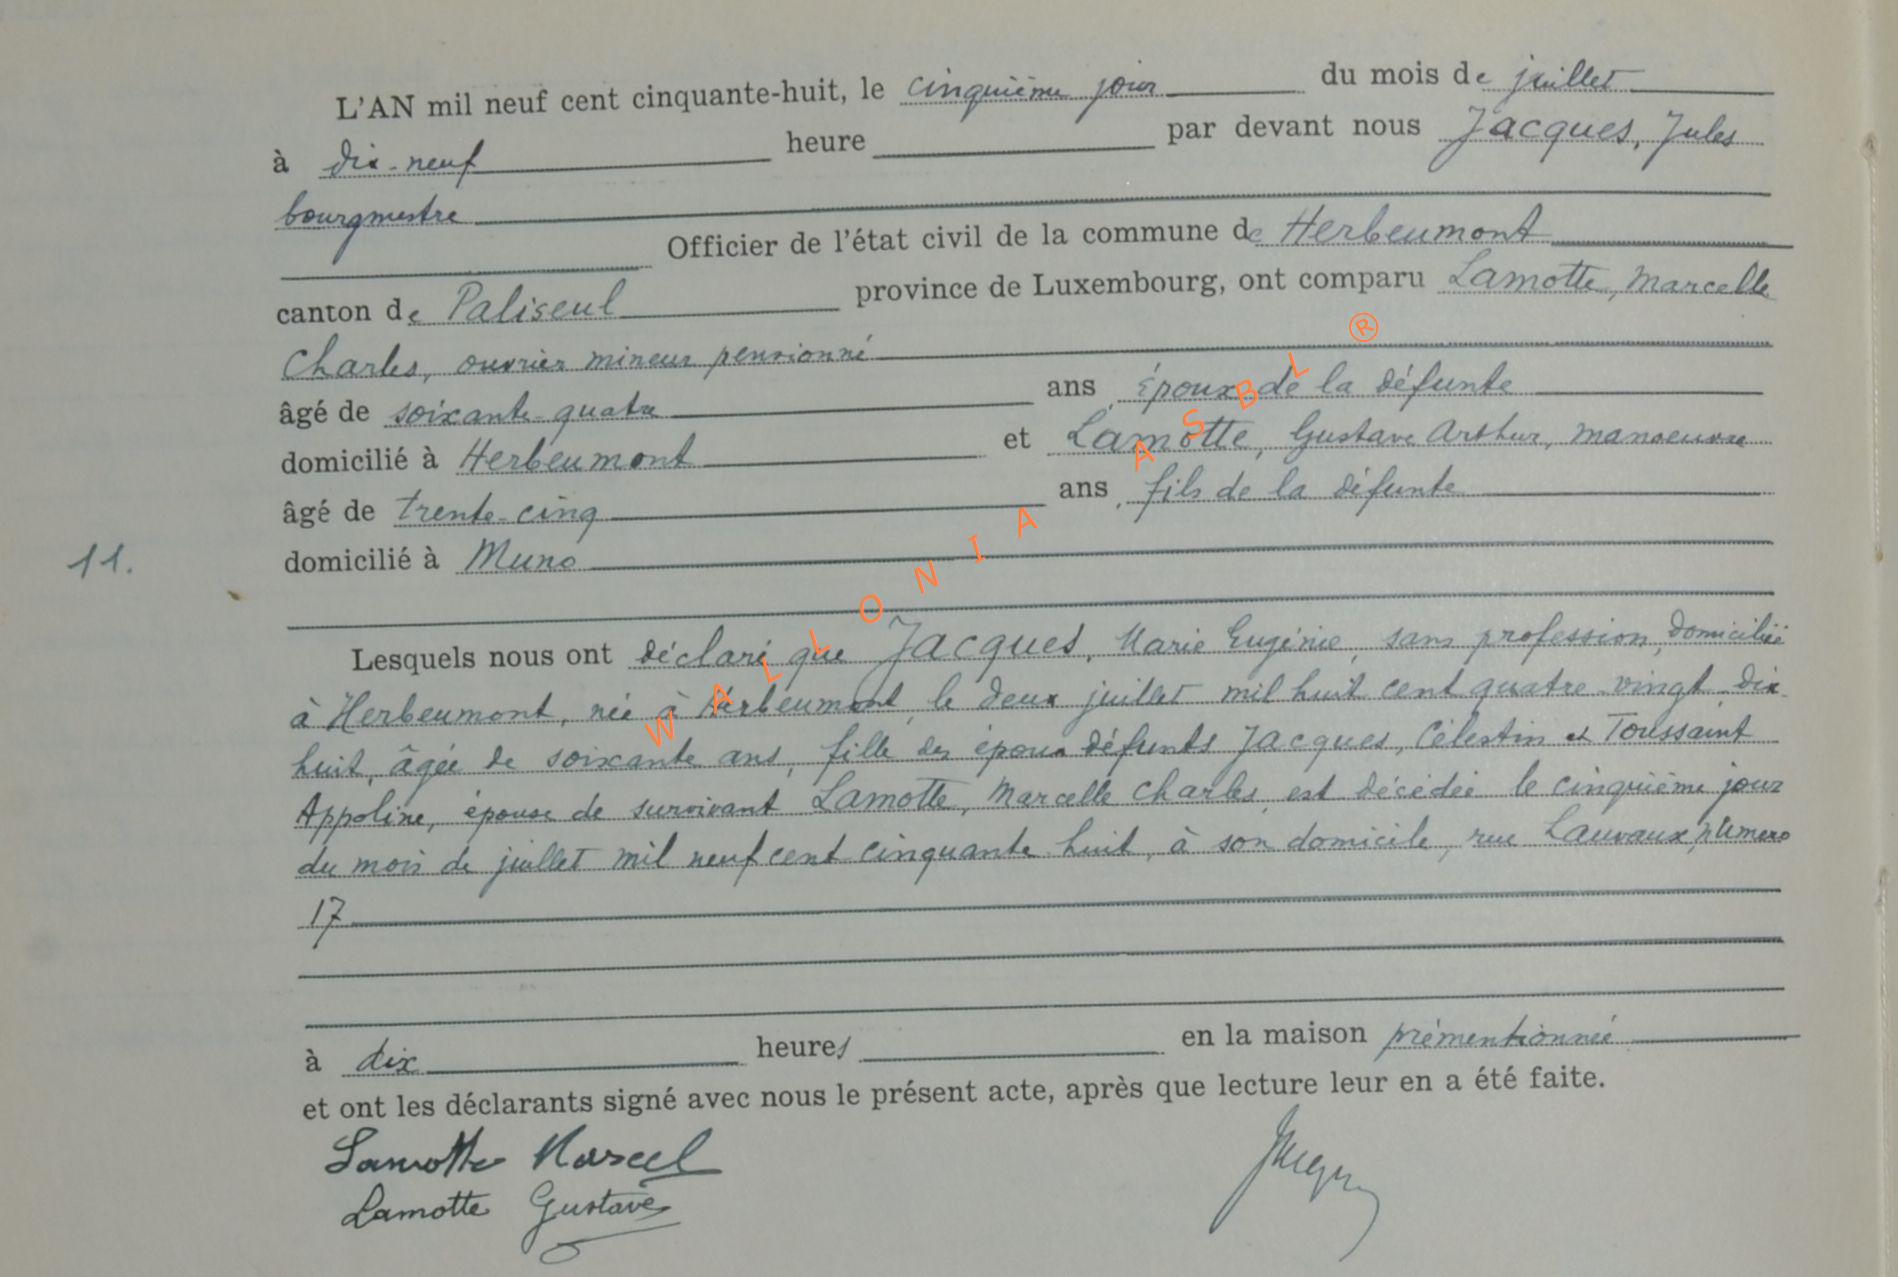 L'AN mil neuf cent cinquante-huit, le cinquième jour du mois de juillet
à dix-neuf heure par devant nous Jacques, Jules
bourgmestre
Officier de l'état civil de la commune de Herbeumont
canton de Paliseul province de Luxembourg, ont comparu Lamotte, Marcelle
Charles, ouvrier mineur pensionné
âgé de soixante-quatre ans, époux de la défunte
domicilié à Herbeumont et Lamotte, Gustave Arthur, manoeuvre
âgé de trente-cinq ans, fils de la défunte
11. domicilié à Muno
Lesquels nous ont déclaré que Jacques, Marie Eugénie, sans profession, domiciliée
à Herbeumont, née à Herbeumont, le deux juillet mil huit cent quatre-vingt-dix-
huit, âgée de soixante ans, fille des époux défunts Jacques, Célestin et Toussaint
Appoline, épouse de survivant Lamotte, Marcelle Charles, est décédée le cinquième jour
du mois de juillet mil neuf cent cinquante huit, à son domicile, rue Lauvaux, numero
17
à dix heures en la maison prémentionnée
et ont les déclarants signé avec nous le présent acte, après que lecture leur en a été faite.
Lamotte Marcel
Lamotte Gustave
WALLONIA ASBL ®